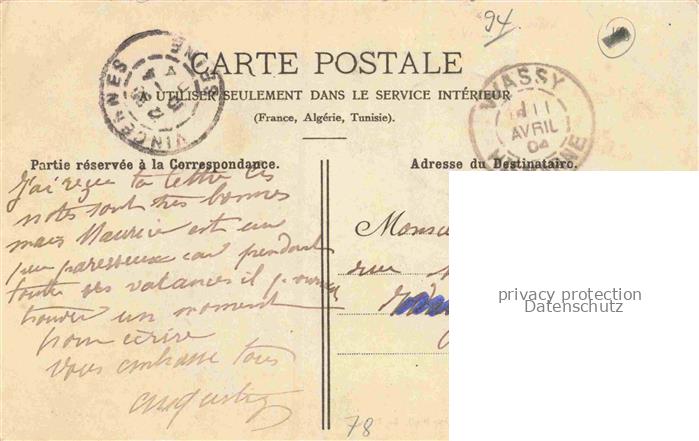 94
CARTE POSTALE
A UTILISER SEULEMENT DANS LE SERVICE INTÉRIEUR
(France, Algérie, Tunisie).
VINCENNES
SEINE
WASSY
11
AVRIL
04
Partie réservée à la Correspondance.
Adresse du Destinataire.
J'ai reçu ta lettre
notes sont très bonnes
mais Maurice est un
peu paresseux car pendant
toutes ses vacances il
trouver un moment
pour écrire
Vous embrasse tous
Monsie
rue
privacy protection
Datenschutz
78